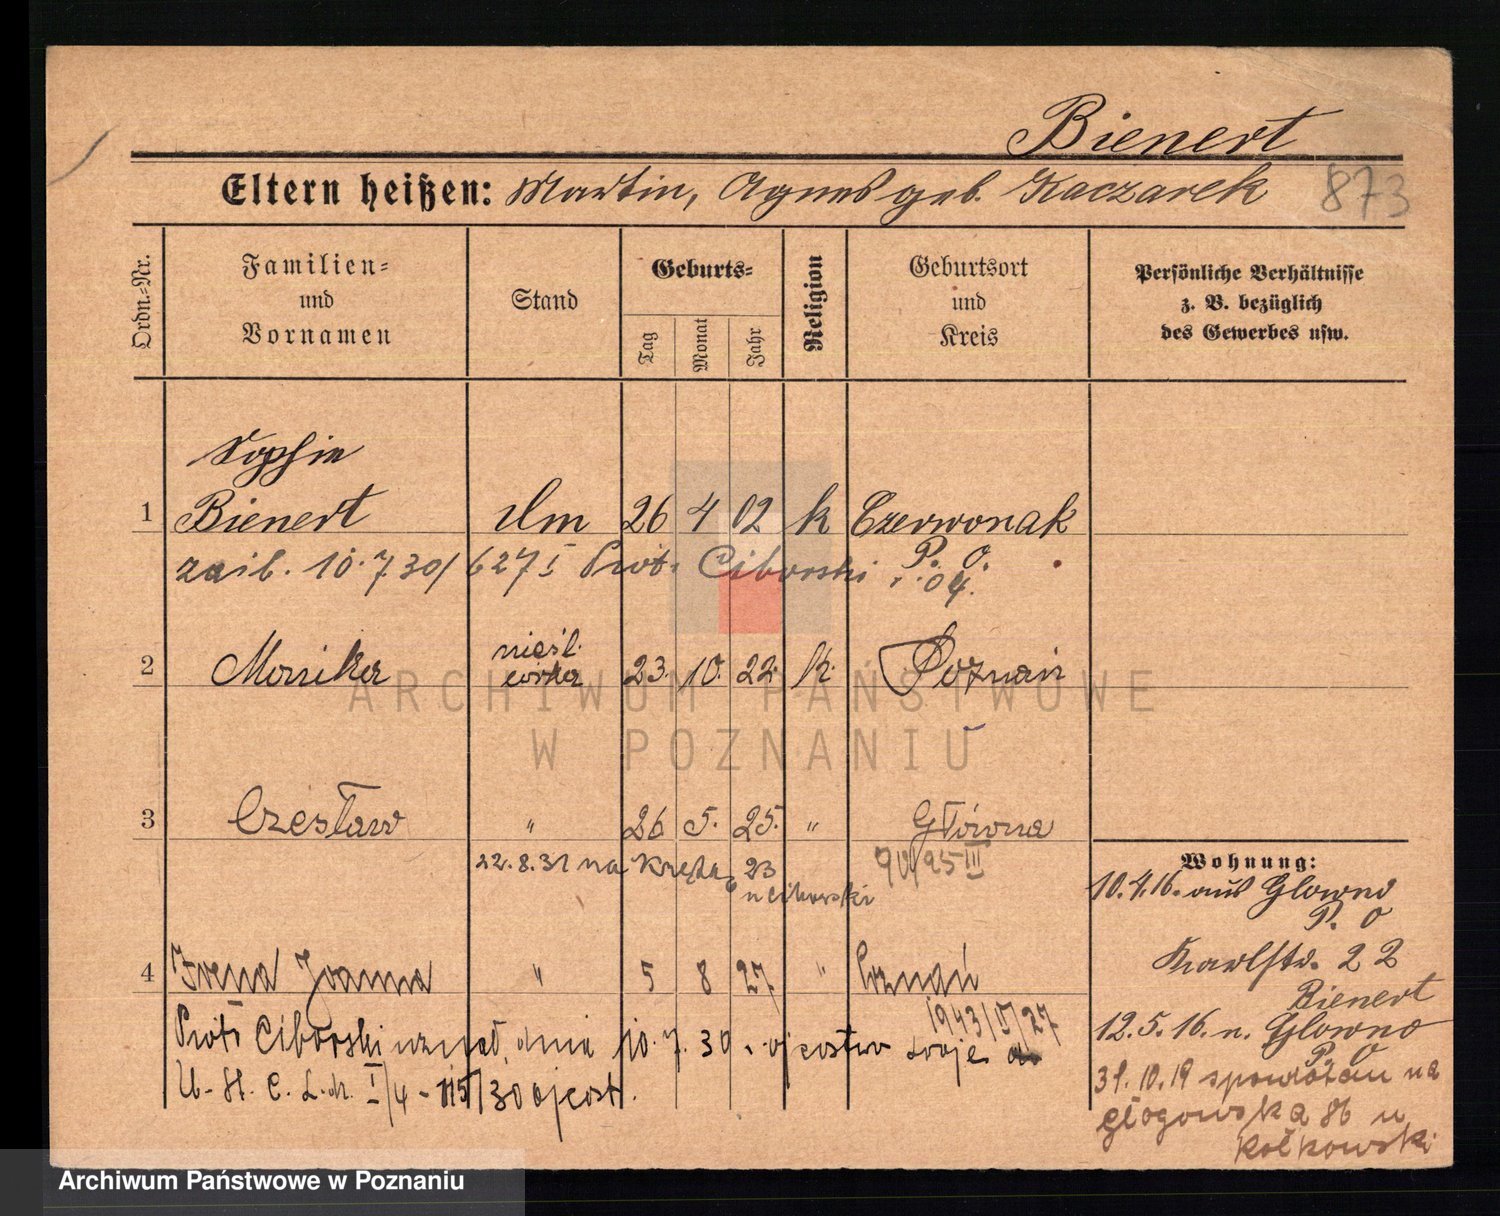 Bienert
Eltern heißen: Martin, Agnes geb. Kaczarek 873
Ordn.-Nr.
Familien-
und
Vornamen
Stand
Geburts-
Tag
Monat
Jahr
Religion
Geburtsort
und
Kreis
Persönliche Verhältnisse
z. B. bezüglich
des Gewerbes usw.
Sophie
1 Bienert 26 4 02 k Czerwonak
P. O.
10.7.30/627 I Piotr Ciborski
nieśl.
2 Monika córka 23. 10. 22. k. Poznań
3 Czesław " 26 5. 25. " Główna
22.8.31 na 23
u Ciborski
Wohnung:
10.4.16. aus Glowno
P. O
Karlstr. 22
4 Irena Joanna " 5 8 27 " Poznań
Bienert
1943/V/27
12.5.16. n. Glowno
P. O
Piotr Ciborski uznał dnia 10.7.30. ojcostwo swoje
U-St. C. I/4 - 115/30 ojcost.
31.10.19 spowrotem na
Głogowska 86 u
Kołkowski
ARCHIWUM PAŃSTWOWE
W POZNANIU
Archiwum Państwowe w Poznaniu